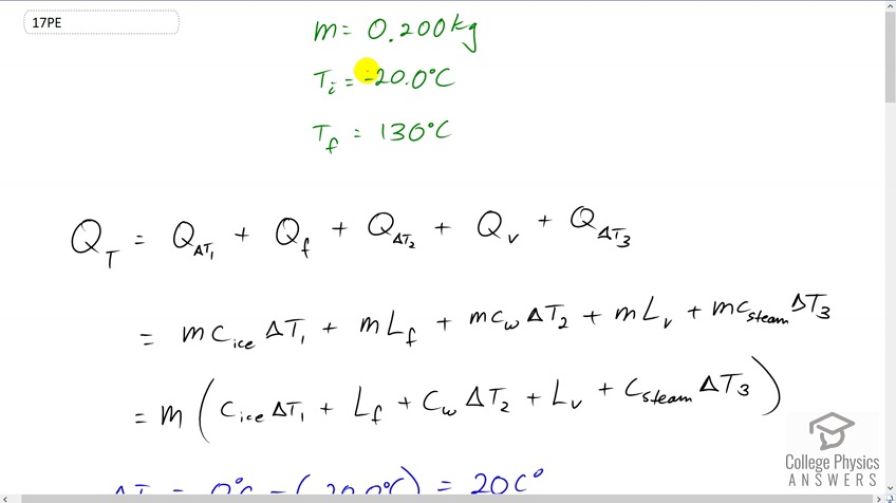 17PE
m = 0.200 kg
T_i = -20.0°C
T_f = 130°C
Q_T = Q_ΔT₁ + Q_f + Q_ΔT₂ + Q_v + Q_ΔT₃
= m c_ice ΔT₁ + m L_f + m c_w ΔT₂ + m L_v + m c_steam ΔT₃
= m ( c_ice ΔT₁ + L_f + c_w ΔT₂ + L_v + c_steam ΔT₃ )
ΔT₁ = 0°C - (-20.0°C) = 20 C°
College Physics
ANSWERS